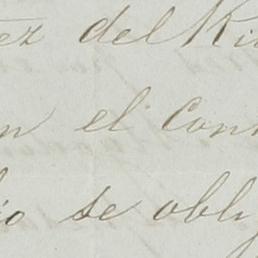 ez del Ri
n el Con
io se obli